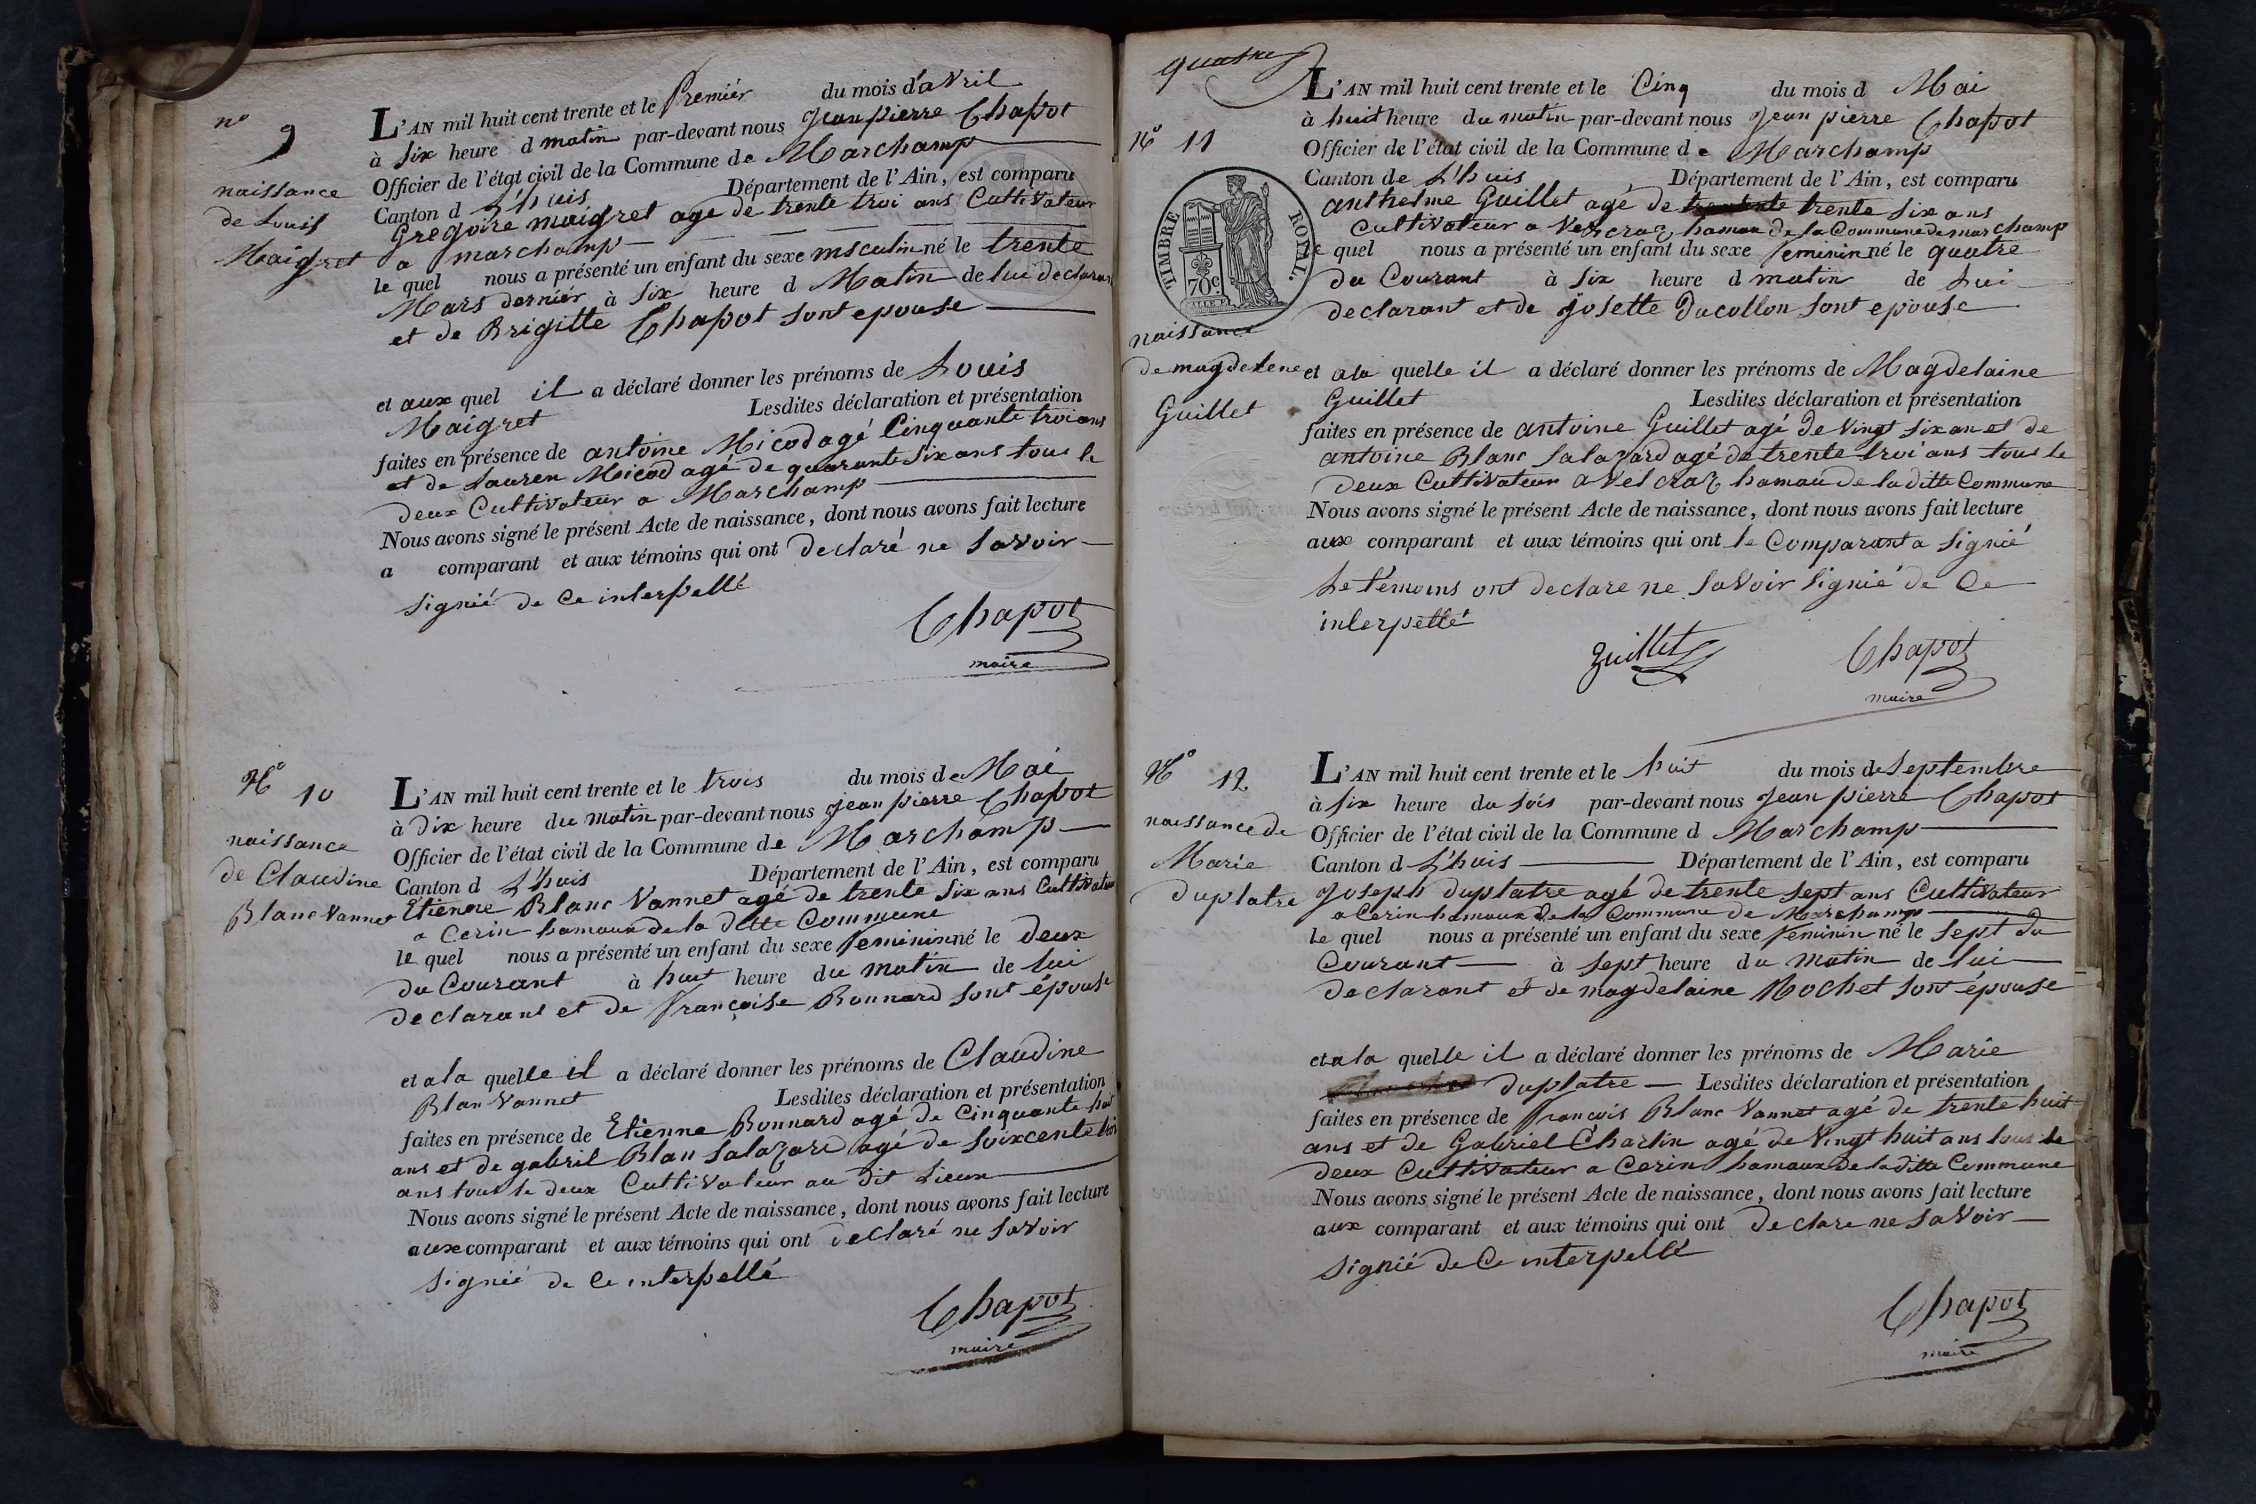 n° 9
naissance
de Louis
Maigret
L'AN mil huit cent trente et le Premier du mois d'avril
à six heure d matin par-devant nous Jean pierre Chapot
Officier de l'état civil de la Commune de Marchamp
Canton d L'huis Département de l'Ain, est comparu
Gregoire maigret age de trente troi ans Cultivateur
a marchamp
le quel nous a présenté un enfant du sexe msculin né le trente
Mars dernier à six heure d Matin de lui declarant
et de Brigitte Chapot sont epouse
et aux quel il a déclaré donner les prénoms de Louis
Maigret Lesdites déclaration et présentation
faites en présence de antoine Micod agé Cinquante troi ans
et de Lauren Micod agé de quarante six ans tous le
deux Cultivateur a Marchamp
Nous avons signé le présent Acte de naissance, dont nous avons fait lecture
a comparant et aux témoins qui ont declaré ne savoir
signié de ce interpellé
Chapot
maire
N° 10
naissance
de Claudine
Blanc Vannet
L'AN mil huit cent trente et le trois du mois de Mai
à dix heure du matin par-devant nous jean pierre Chapot
Officier de l'état civil de la Commune de Marchamp
Canton d L'huis Département de l'Ain, est comparu
Etienne Blanc Vannet agé de trente six ans Cultivateur
a Cerin hamaux de la ditte Commune
le quel nous a présenté un enfant du sexe feminin né le deux
du Courant à huit heure du matin de lui
declarant et de françoise Bonnard sont épouse
et a la quelle il a déclaré donner les prénoms de Claudine
Blan Vannet Lesdites déclaration et présentation
faites en présence de Etienne Bonnard agé de Cinquante huit
ans et de gabril Blan Salazard agé de soixcente troi
ans tous le deux Cultivateur au dit Lieux
Nous avons signé le présent Acte de naissance, dont nous avons fait lecture
aux comparant et aux témoins qui ont declaré ne savoir
signié de ce interpellé
Chapot
maire
quatre
N° 11
TIMBRE ROYAL.
70c
naissance
de magdelene
Guillet
L'AN mil huit cent trente et le Cinq du mois d Mai
à huit heure du matin par-devant nous Jean pierre Chapot
Officier de l'état civil de la Commune de Marchamp
Canton de L'huis Département de l'Ain, est comparu
anthelme Guillet agé de trente six ans
Cultivateur a hamau de la Commune de marchamp
le quel nous a présenté un enfant du sexe feminin né le quatre
du Courant à six heure d matin de Lui
declarant et de josette Ducollon sont epouse
et a la quelle il a déclaré donner les prénoms de Magdelaine
Guillet Lesdites déclaration et présentation
faites en présence de antoine Guillet agé de vingt six an et de
antoine Blanc Salazard agé de trente troi ans tous le
deux Cultivateur a hamau de la ditte Commune
Nous avons signé le présent Acte de naissance, dont nous avons fait lecture
aux comparant et aux témoins qui ont le Comparant a signié
Le témoins ont declare ne savoir signié de ce
interpellé
Guillet Chapot
maire
N° 12
naissance de
Marie
duplatre
L'AN mil huit cent trente et le huit du mois de septembre
à six heure du sois par-devant nous Jean pierre Chapot
Officier de l'état civil de la Commune d Marchamp
Canton d L'huis Département de l'Ain, est comparu
Joseph duplatre agé de trente sept ans Cultivateur
a Cerin hamaux de la Commune de Marchamp
le quel nous a présenté un enfant du sexe feminin né le sept du
Courant à sept heure du matin de lui
declarant et de magdelaine Mochet sont épouse
et a la quelle il a déclaré donner les prénoms de Marie
duplatre Lesdites déclaration et présentation
faites en présence de françois Blanc Vannet agé de trente huit
ans et de Gabriel Charlin agé de Vingt huit ans tous le
deux Cultivateur a Cerin hamaux de la ditte Commune
Nous avons signé le présent Acte de naissance, dont nous avons fait lecture
aux comparant et aux témoins qui ont declare ne savoir
signié de ce interpellé
Chapot
maire